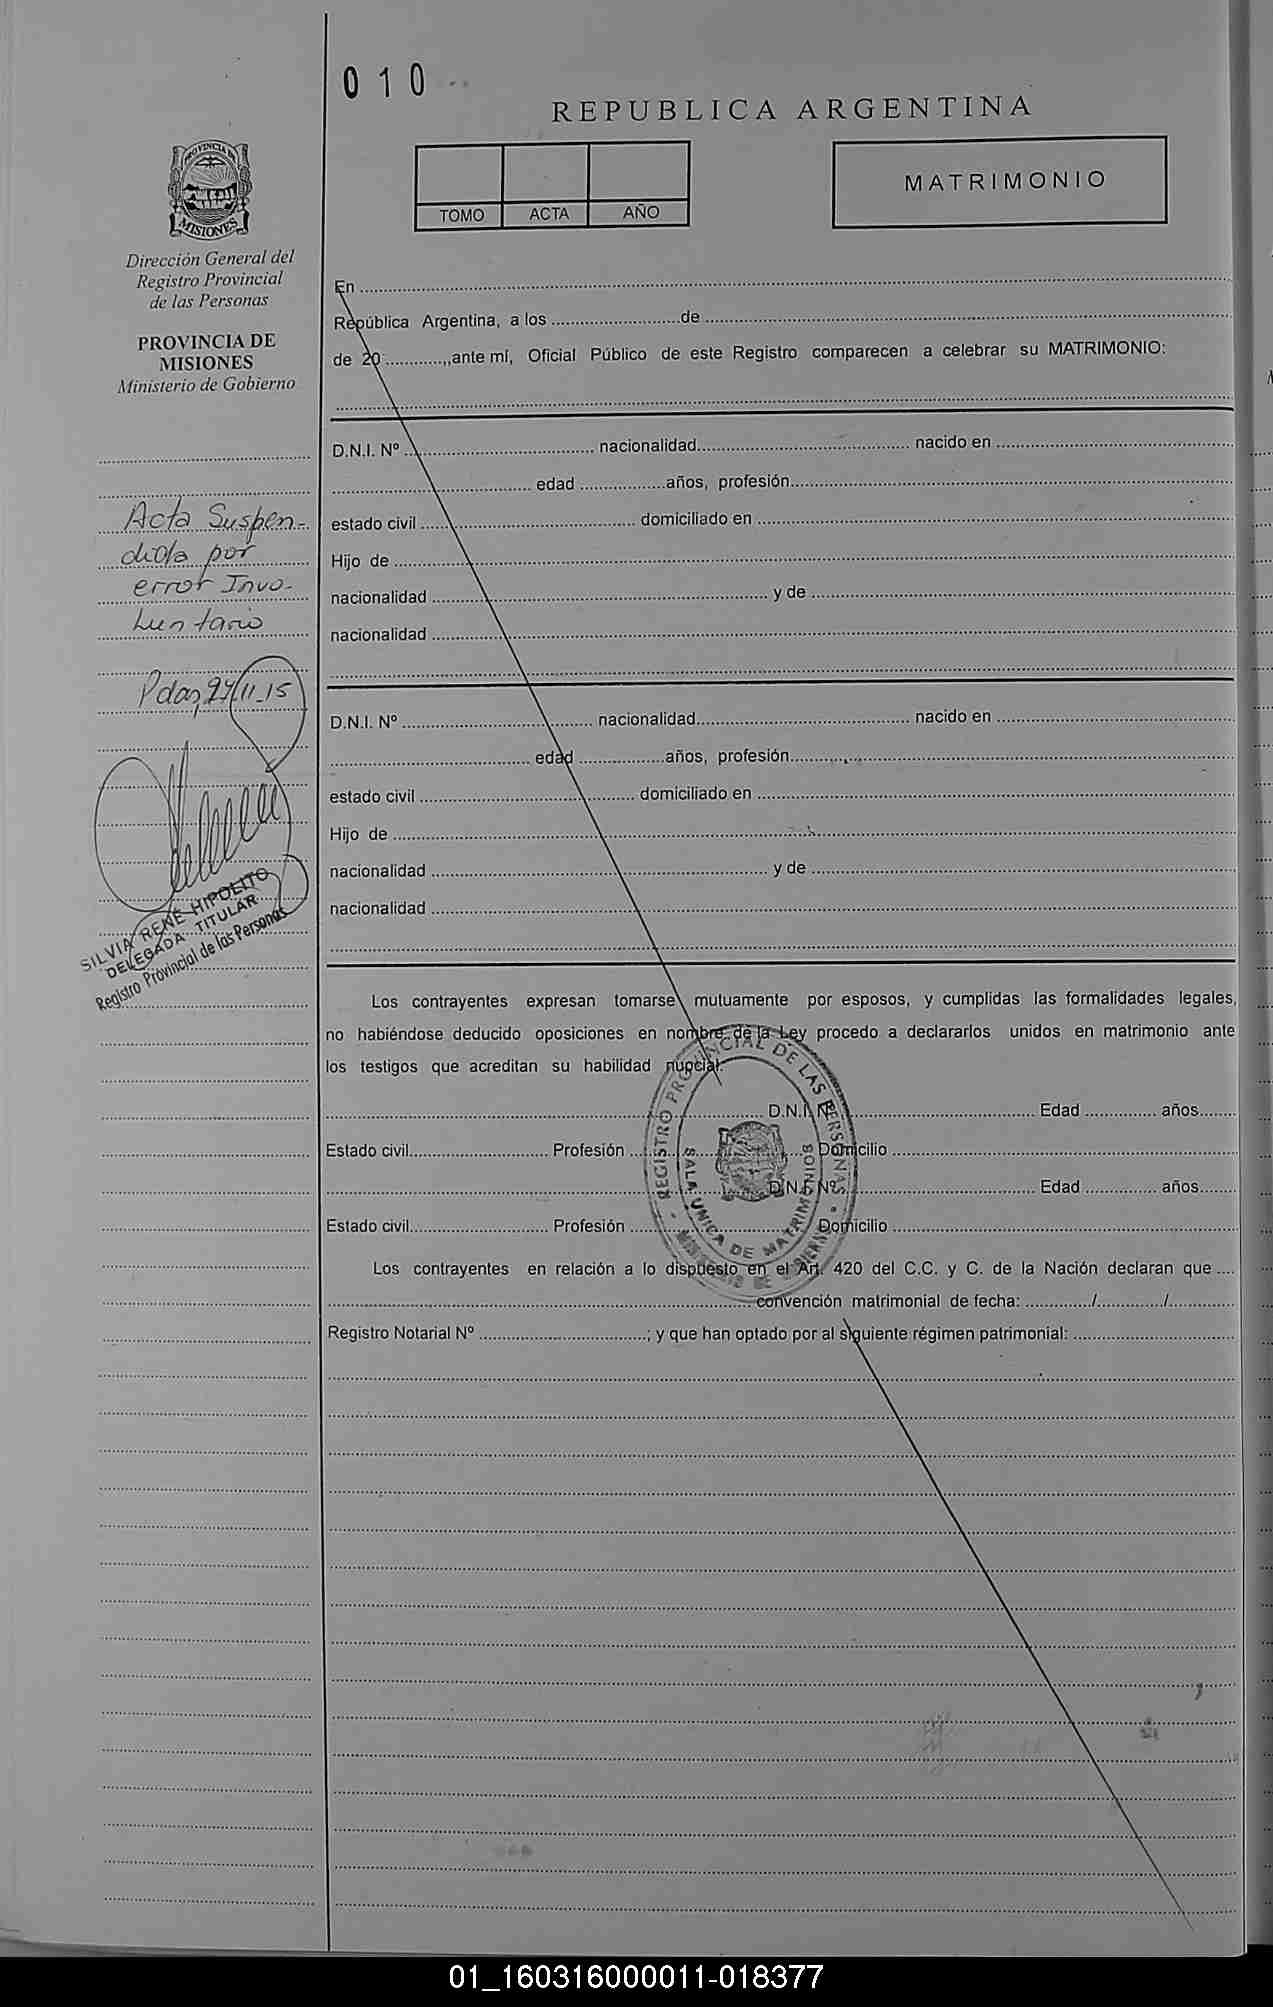 010
REPUBLICA ARGENTINA
TOMO ACTA AÑO
MATRIMONIO
PROVINCIA DE
MISIONES
Dirección General del
Registro Provincial
de las Personas
PROVINCIA DE
MISIONES
Ministerio de Gobierno
Acta Suspen-
dida por
error Invo-
luntario
Pdas, 27/11-15
SILVIA RENÉ HIPOLITO
DELEGADA TITULAR
Registro Provincial de las Personas
En
República Argentina, a los de
de 20 ,,ante mí, Oficial Público de este Registro comparecen a celebrar su MATRIMONIO:
D.N.I. Nº nacionalidad nacido en
edad años, profesión
estado civil domiciliado en
Hijo de
nacionalidad y de
nacionalidad
D.N.I. Nº nacionalidad nacido en
edad años, profesión
estado civil domiciliado en
Hijo de
nacionalidad y de
nacionalidad
Los contrayentes expresan tomarse mutuamente por esposos, y cumplidas las formalidades legales,
no habiéndose deducido oposiciones en nombre de la Ley procedo a declararlos unidos en matrimonio ante
los testigos que acreditan su habilidad nupcial.
D.N.I. Nº Edad años
Estado civil Profesión Domicilio
D.N.I. Nº Edad años
Estado civil Profesión Domicilio
REGISTRO PROVINCIAL DE LAS PERSONAS
SALA UNICA DE MATRIMONIOS
Los contrayentes en relación a lo dispuesto en el Art. 420 del C.C. y C. de la Nación declaran que
convención matrimonial de fecha: / /
Registro Notarial Nº ; y que han optado por al siguiente régimen patrimonial:
01_160316000011-018377